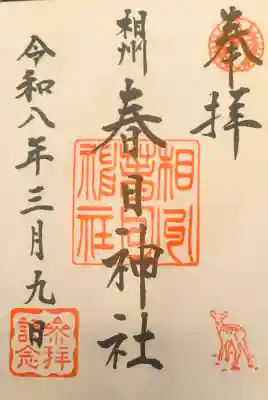 奉拝
相州
春日神社
相州
春日
神社
令和八年三月九日
参拝
記念